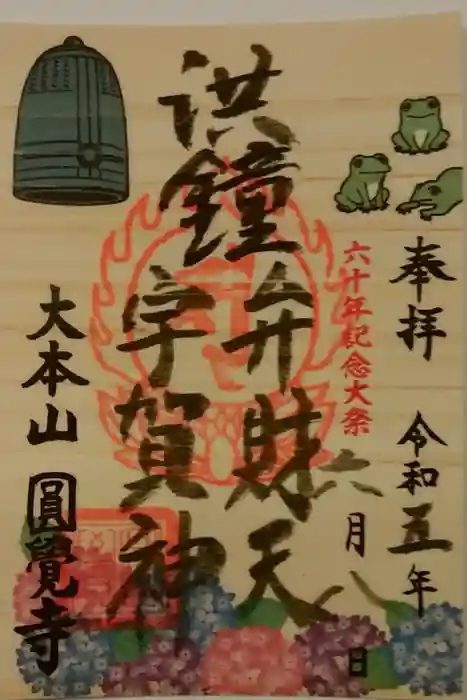 奉拝 令和五年
六月八日
六十年記念大祭
洪鐘弁財天
宇賀神
大本山 圓覺寺